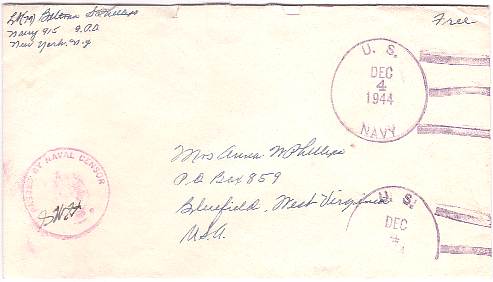 Navy 915 F.P.O.
New York, N.Y.
Free
U. S.
DEC
4
1944
NAVY
PASSED BY NAVAL CENSOR
Mrs Anna W Phillips
P.O. Box 859
Bluefield, West Virginia
U.S.A.
U. S.
DEC
4